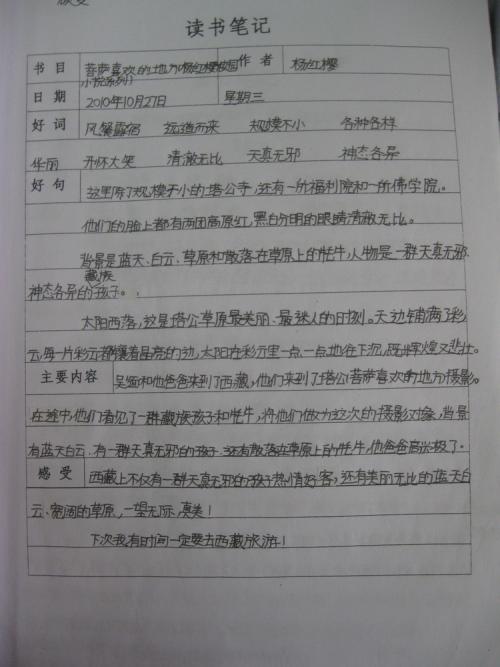 读书笔记
书目 菩萨喜欢的地方(杨红樱校园小说系列) 作者 杨红樱
日期 2010年10月27日 星期三
好词 风餐露宿 远道而来 规模不小 各种各样
华丽 开怀大笑 清澈无比 天真无邪 神态各异
好句 这里除了规模不小的塔公寺,还有一所福利院和一所佛学院。
他们的脸上都有两团高原红,黑白分明的眼睛清澈无比。
背景是蓝天、白云、草原和散落在草原上的牦牛,人物是一群天真无邪
神态各异的藏族孩子。
太阳西落,这是塔公草原最美丽、最迷人的时刻。天边铺满了彩
云,每一片彩云都镶着晶亮的边,太阳在彩云里一点一点地往下沉,既辉煌又悲壮。
主要内容 吴缅和他爸爸来到了西藏,他们来到了塔公(菩萨喜欢的地方)摄影。
在途中,他们看见了一群藏族孩子和牦牛,将他们做为这次的摄影对象,背景
有蓝天白云,有一群天真无邪的孩子,还有散落在草原上的牦牛,他爸爸高兴极了。
感受 西藏上不仅有一群天真无邪的孩子热情好客,还有美丽无比的蓝天白
云、宽阔的草原,一望无际,真美!
下次我有时间一定要去西藏旅游!